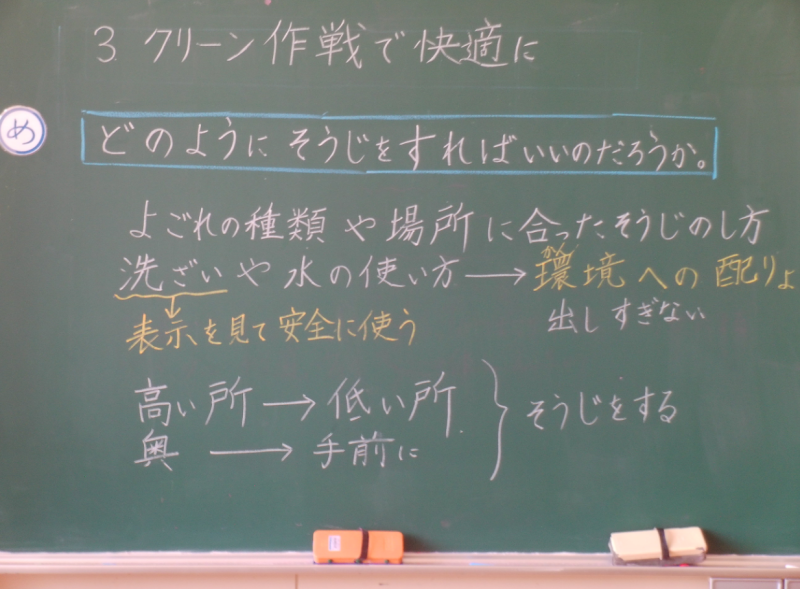 3. クリーン作戦で快適に
め
どのようにそうじをすればいいのだろうか。
よごれの種類や場所に合ったそうじのし方
洗ざいや水の使い方→環境への配りょ
かん
表示を見て安全に使う
出しすぎない
高い所→低い所
そうじをする
奥→手前に